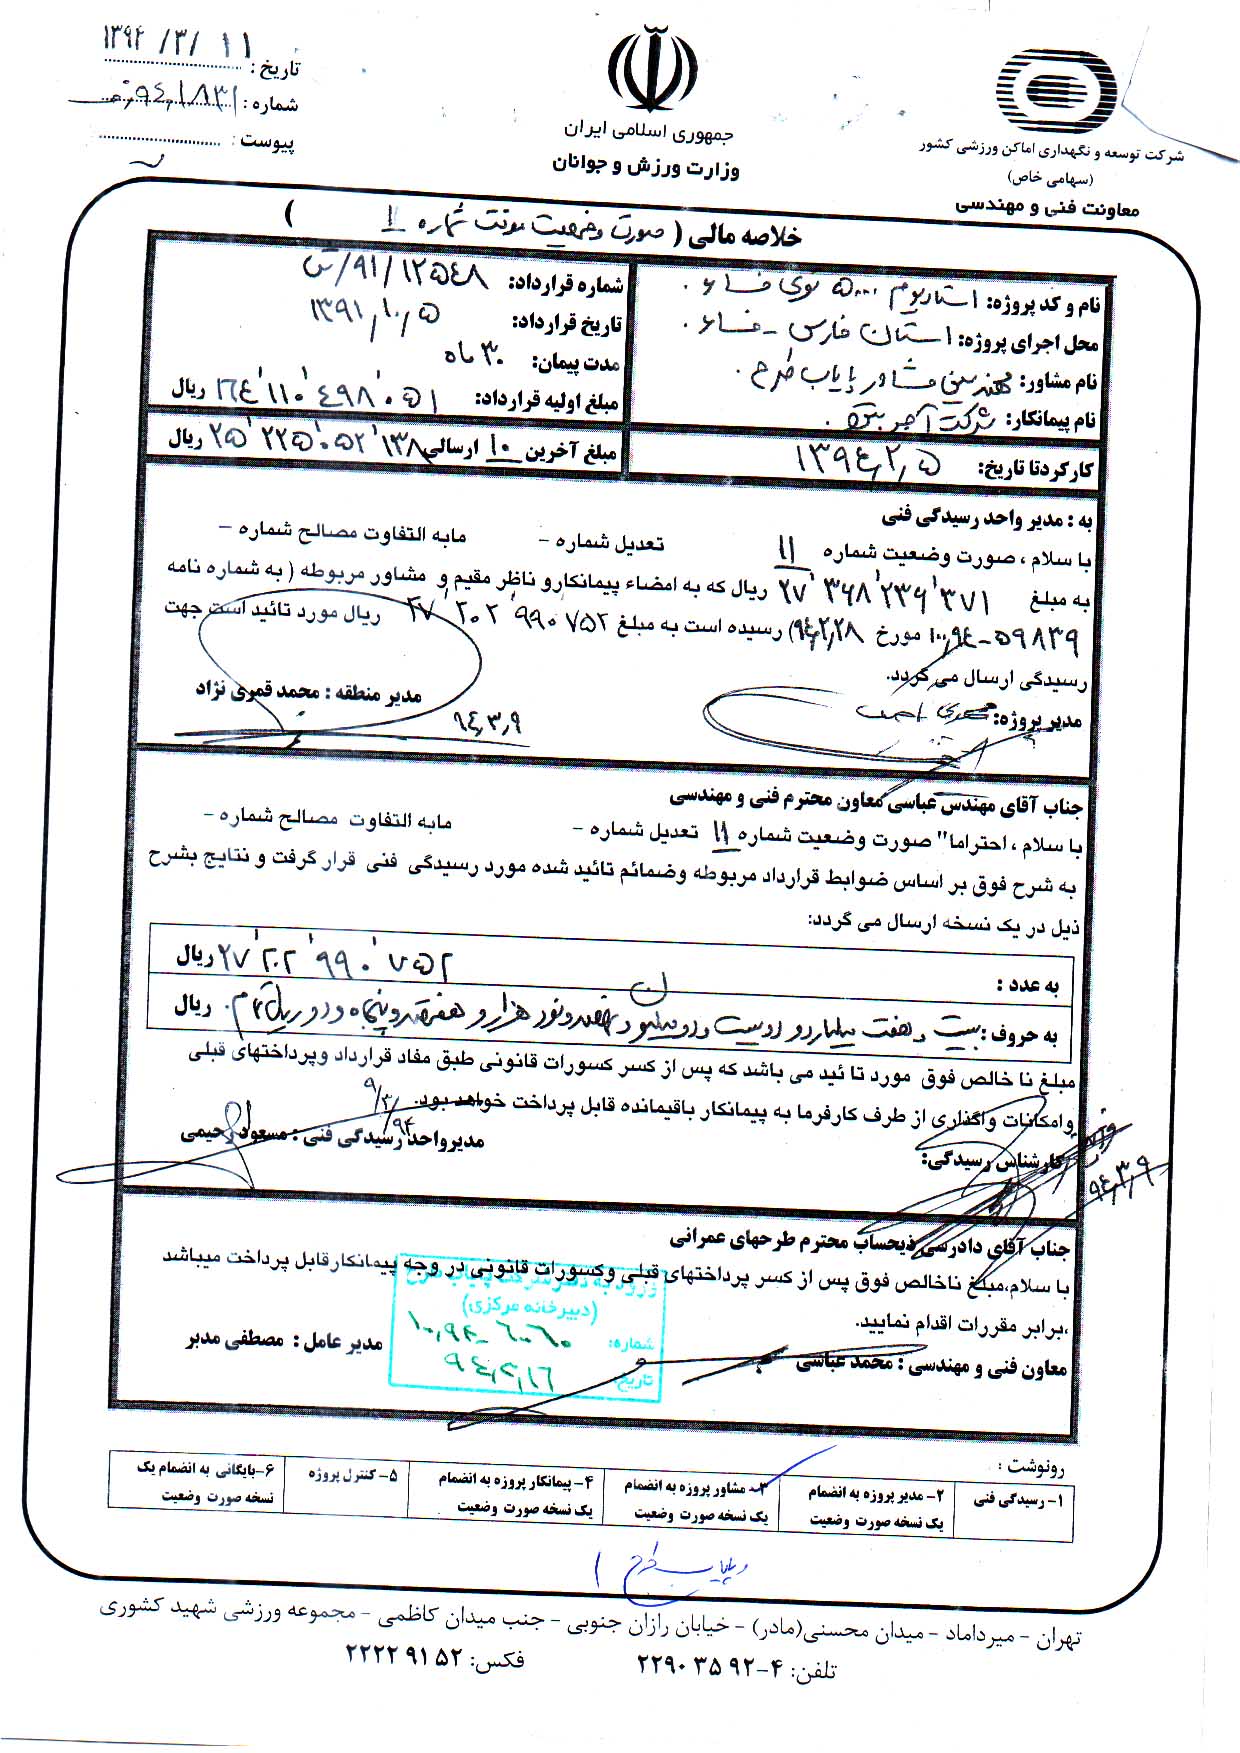 تاریخ : ۱۳۹۴/۳/۱۱
شماره :
پیوست :
جمهوری اسلامی ایران
وزارت ورزش و جوانان
شرکت توسعه و نگهداری اماکن ورزشی کشور
(سهامی خاص)
معاونت فنی و مهندسی
خلاصه مالی ( صورت وضعیت موقت شماره ۱۱ )
نام و کد پروژه: استادیوم ۵۰۰۰ نفری فسا
محل اجرای پروژه: استان فارس - فسا
نام مشاور: مهندسین مشاور پایاب طرح
نام پیمانکار: شرکت آجر
کارکرد تا تاریخ: ۱۳۹۴,۲,۵
شماره قرارداد: ۹۱/۱۲۵۴۸/ش
تاریخ قرارداد: ۱۳۹۱,۱۰,۵
مدت پیمان: ۳۰ ماه
مبلغ اولیه قرارداد: ۱۶۴٬۱۱۰٬۴۹۸٬۰۵۱ ریال
مبلغ آخرین ۱۰ ارسالی ۲۵٬۲۲۵٬۰۵۲٬۱۳۸ ریال
به : مدیر واحد رسیدگی فنی
با سلام ، صورت وضعیت شماره ۱۱ تعدیل شماره - مابه التفاوت مصالح شماره -
به مبلغ ۲۷٬۳۶۸٬۲۳۹٬۳۷۱ ریال که به امضاء پیمانکار و ناظر مقیم و مشاور مربوطه ( به شماره نامه
۱۰۰,۹۴-۵۹۸۳۹ مورخ ۹۴,۲,۲۸) رسیده است به مبلغ ۲۷٬۲۰۲٬۹۹۰٬۷۵۲ ریال مورد تائید است جهت
رسیدگی ارسال می گردد.
مدیر پروژه:
مدیر منطقه : محمد قمری نژاد
۹۴,۳,۹
جناب آقای مهندس عباسی معاون محترم فنی و مهندسی
با سلام ، احتراما" صورت وضعیت شماره ۱۱ تعدیل شماره - مابه التفاوت مصالح شماره -
به شرح فوق بر اساس ضوابط قرارداد مربوطه وضمائم تائید شده مورد رسیدگی فنی قرار گرفت و نتایج بشرح
ذیل در یک نسخه ارسال می گردد:
به عدد : ۲۷٬۲۰۲٬۹۹۰٬۷۵۲ ریال
به حروف : بیست و هفت میلیارد و دویست و دو میلیون و نهصد و نود هزار و هفتصد و پنجاه و دو ریال تمام. ریال
مبلغ نا خالص فوق مورد تا ئید می باشد که پس از کسر کسورات قانونی طبق مفاد قرارداد وپرداختهای قبلی
وامکانات واگذاری از طرف کارفرما به پیمانکار باقیمانده قابل پرداخت خواهد بود.
کارشناس رسیدگی:
۹۴,۳,۹
مدیرواحد رسیدگی فنی : مسعود رحیمی
۹/۳/۹۴
جناب آقای دادرسی ذیحساب محترم طرحهای عمرانی
با سلام،مبلغ ناخالص فوق پس از کسر پرداختهای قبلی وکسورات قانونی در وجه پیمانکار قابل پرداخت میباشد
،برابر مقررات اقدام نمایید.
معاون فنی و مهندسی : محمد عباسی
مدیر عامل : مصطفی مدبر
ورود به دفتر شرکت پایاب طرح
(دبیرخانه مرکزی)
شماره: ۱۰,۹۴-۶۰۶۰
تاریخ: ۹۴,۳,۱۶
رونوشت :
۱- رسیدگی فنی
۲- مدیر پروژه به انضمام یک نسخه صورت وضعیت
۳- مشاور پروزه به انضمام یک نسخه صورت وضعیت
۴- پیمانکار پروزه به انضمام یک نسخه صورت وضعیت
۵- کنترل پروژه
۶-بایگانی به انضمام یک نسخه صورت وضعیت
پایاب طرح
تهران - میرداماد - میدان محسنی(مادر) - خیابان رازان جنوبی - جنب میدان کاظمی - مجموعه ورزشی شهید کشوری
تلفن: ۴-۲۲۹۰۳۵۹۲ فکس: ۲۲۲۲۹۱۵۲